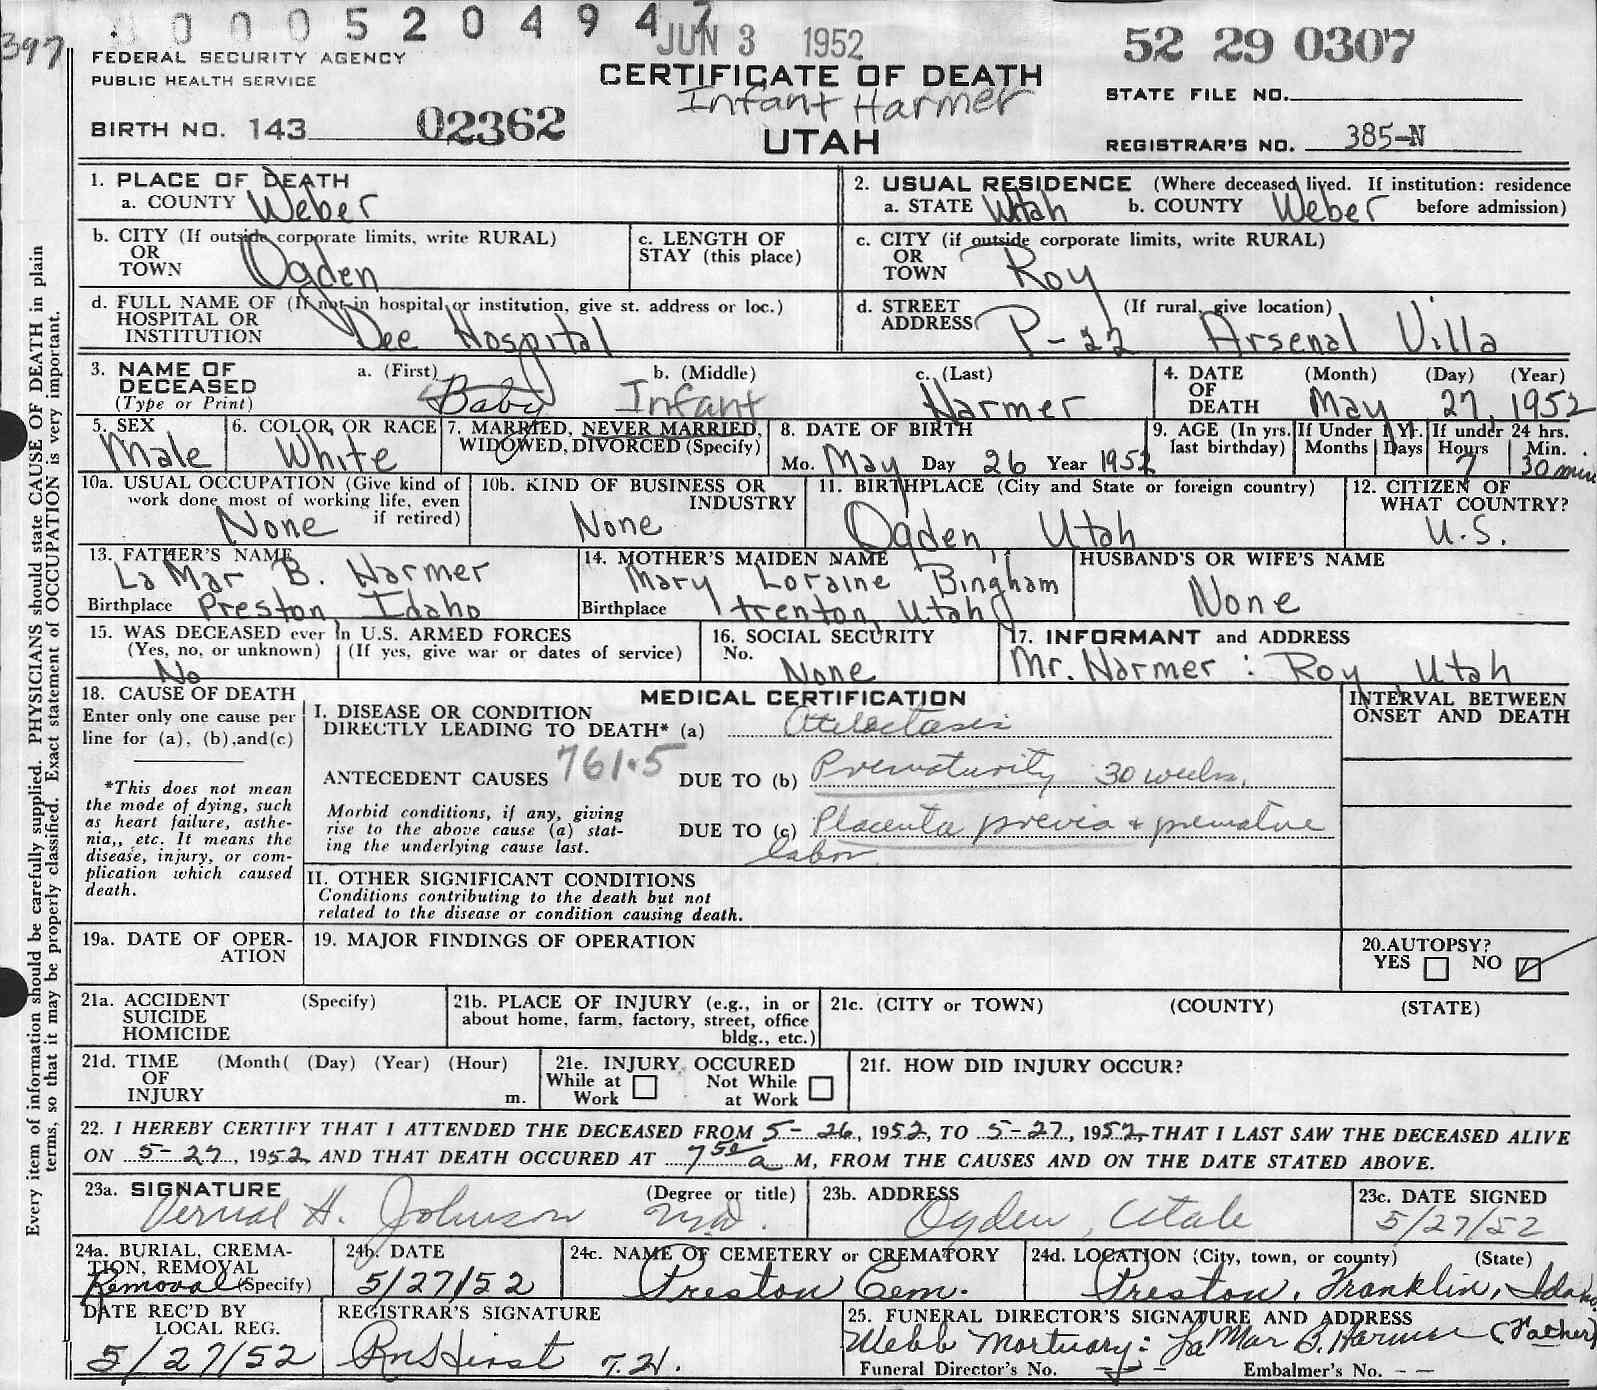 397
000520494
JUN 3 1952
52 29 0307
FEDERAL SECURITY AGENCY
PUBLIC HEALTH SERVICE
CERTIFICATE OF DEATH
Infant Harmer
UTAH
STATE FILE NO.
BIRTH NO. 143 02362
REGISTRAR'S NO. 385-N
Every item of information should be carefully supplied. PHYSICIANS should state CAUSE OF DEATH in plain
terms, so that it may be properly classified. Exact statement of OCCUPATION is very important.
1. PLACE OF DEATH
a. COUNTY Weber
2. USUAL RESIDENCE (Where deceased lived. If institution: residence
a. STATE Utah b. COUNTY Weber before admission)
b. CITY (If outside corporate limits, write RURAL)
OR
TOWN Ogden
c. LENGTH OF
STAY (this place)
c. CITY (if outside corporate limits, write RURAL)
OR
TOWN Roy
d. FULL NAME OF (If not in hospital or institution, give st. address or loc.)
HOSPITAL OR
INSTITUTION Dee Hospital
d. STREET (If rural, give location)
ADDRESS P-22 Arsenal Villa
3. NAME OF
DECEASED
(Type or Print)
a. (First) b. (Middle) c. (Last)
Baby Infant Harmer
4. DATE (Month) (Day) (Year)
OF
DEATH May 27, 1952
5. SEX
Male
6. COLOR OR RACE
White
7. MARRIED, NEVER MARRIED,
WIDOWED, DIVORCED (Specify)
8. DATE OF BIRTH
Mo. May Day 26 Year 1952
9. AGE (In yrs.
last birthday)
If Under 1 Yr.
Months Days
If under 24 hrs.
Hours Min.
7 30 min
10a. USUAL OCCUPATION (Give kind of
work done most of working life, even
if retired)
None
10b. KIND OF BUSINESS OR
INDUSTRY
None
11. BIRTHPLACE (City and State or foreign country)
Ogden, Utah
12. CITIZEN OF
WHAT COUNTRY?
U.S.
13. FATHER'S NAME
La Mar B. Harmer
Birthplace Preston, Idaho
14. MOTHER'S MAIDEN NAME
Mary Loraine Bingham
Birthplace Trenton, Utah
HUSBAND'S OR WIFE'S NAME
None
15. WAS DECEASED ever in U.S. ARMED FORCES
(Yes, no, or unknown) (If yes, give war or dates of service)
No
16. SOCIAL SECURITY
No.
None
17. INFORMANT and ADDRESS
Mr. Harmer : Roy, Utah
18. CAUSE OF DEATH
Enter only one cause per
line for (a), (b),and(c)
*This does not mean
the mode of dying, such
as heart failure, asthe-
nia,, etc. It means the
disease, injury, or com-
plication which caused
death.
MEDICAL CERTIFICATION
INTERVAL BETWEEN
ONSET AND DEATH
I. DISEASE OR CONDITION
DIRECTLY LEADING TO DEATH* (a) Atelectasis
ANTECEDENT CAUSES 761.5 DUE TO (b) Prematurity 30 weeks.
Morbid conditions, if any, giving
rise to the above cause (a) stat-
ing the underlying cause last.
DUE TO (c) Placenta previa + premature
labor
II. OTHER SIGNIFICANT CONDITIONS
Conditions contributing to the death but not
related to the disease or condition causing death.
19a. DATE OF OPER-
ATION
19. MAJOR FINDINGS OF OPERATION
20.AUTOPSY?
YES NO
21a. ACCIDENT (Specify)
SUICIDE
HOMICIDE
21b. PLACE OF INJURY (e.g., in or
about home, farm, factory, street, office
bldg., etc.)
21c. (CITY or TOWN) (COUNTY) (STATE)
21d. TIME (Month( (Day) (Year) (Hour)
OF
INJURY m.
21e. INJURY OCCURED
While at Work Not While at Work
21f. HOW DID INJURY OCCUR?
22. I HEREBY CERTIFY THAT I ATTENDED THE DECEASED FROM 5-26, 1952, TO 5-27, 1952, THAT I LAST SAW THE DECEASED ALIVE
ON 5-27, 1952 AND THAT DEATH OCCURED AT a M, FROM THE CAUSES AND ON THE DATE STATED ABOVE.
23a. SIGNATURE (Degree or title)
Vernal H. Johnson M.D.
23b. ADDRESS
Ogden, Utah
23c. DATE SIGNED
5/27/52
24a. BURIAL, CREMA-
TION, REMOVAL
Removal (Specify)
24b. DATE
5/27/52
24c. NAME OF CEMETERY or CREMATORY
Preston Cem.
24d. LOCATION (City, town, or county) (State)
Preston, Franklin, Idaho
DATE REC'D BY
LOCAL REG.
5/27/52
REGISTRAR'S SIGNATURE
Hirst
25. FUNERAL DIRECTOR'S SIGNATURE AND ADDRESS
Webb Mortuary: La Mar B. Harmer (Father)
Funeral Director's No. Embalmer's No. --